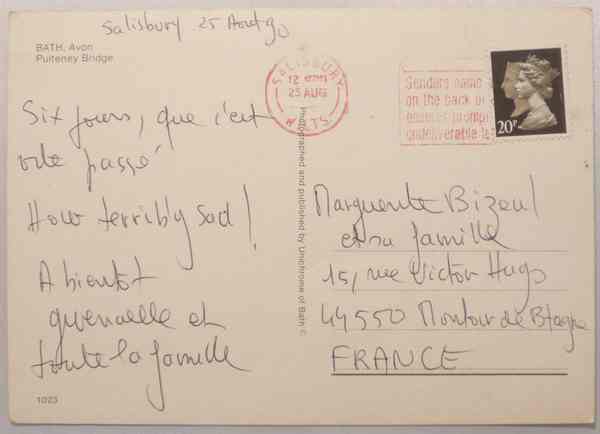 Salisbury 25 Août 90
BATH, Avon
Pulteney Bridge
SALISBURY
12
25 AUG
WILTS
Senders name
on the back of
ensures prompt
undeliverable
20P
Six jours, que c'est
vite passé
How terribly sad!
A bientôt
gwenaelle et
toute la famille
Photographed and published by Unichrome of Bath ©
Marguerite Bizeul
et sa famille
15, rue Victor Hugo
44550 Montoir de Btagne
FRANCE
1023